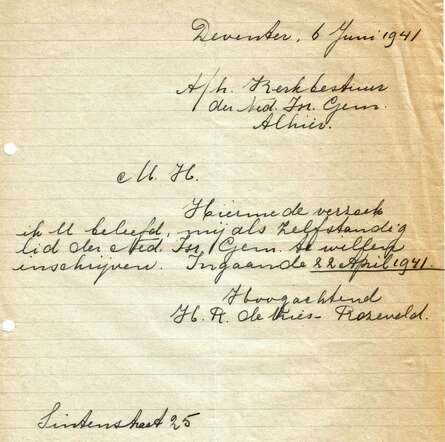 Deventer, 6 Juni 1941
A/h. Kerkbestuur
der Ned. Isr. Gem.
Alhier.
M. H.
Hiermede verzoek
ik U beleefd, mij als zelfstandig
lid der Ned. Isr. Gem. te willen
inschrijven. Ingaande 22 April 1941.
Hoogachtend
H. R. de Vries- Rozeveld.
Sintenstraat 25